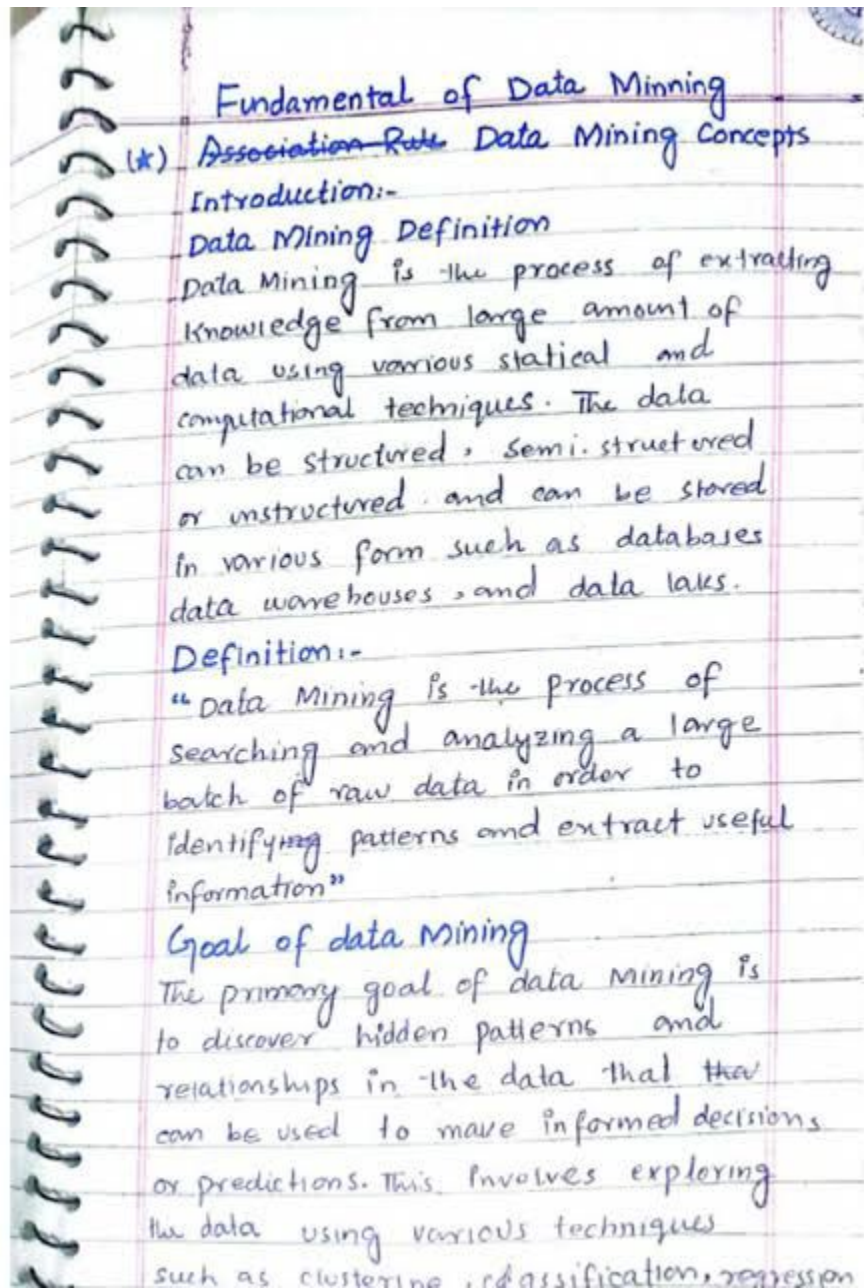 Fundamental of Data Minning
(*) Association Rule Data Mining Concepts
Introduction:-
Data Mining Definition
Data Mining is the process of extracting
Knowledge from large amount of
data using various statical and
computational techniques. The data
can be structured, semi-structured
or unstructured and can be stored
in various form such as databases
data warehouses, and data laks.
Definition:-
"Data Mining is the process of
searching and analyzing a large
batch of raw data in order to
identifying patterns and extract useful
information"
Goal of data Mining
The primary goal of data Mining is
to discover hidden patterns and
relationships in the data that
can be used to make informed decisions
or predictions. This involves exploring
the data using various techniques
such as clustering, classification, regression